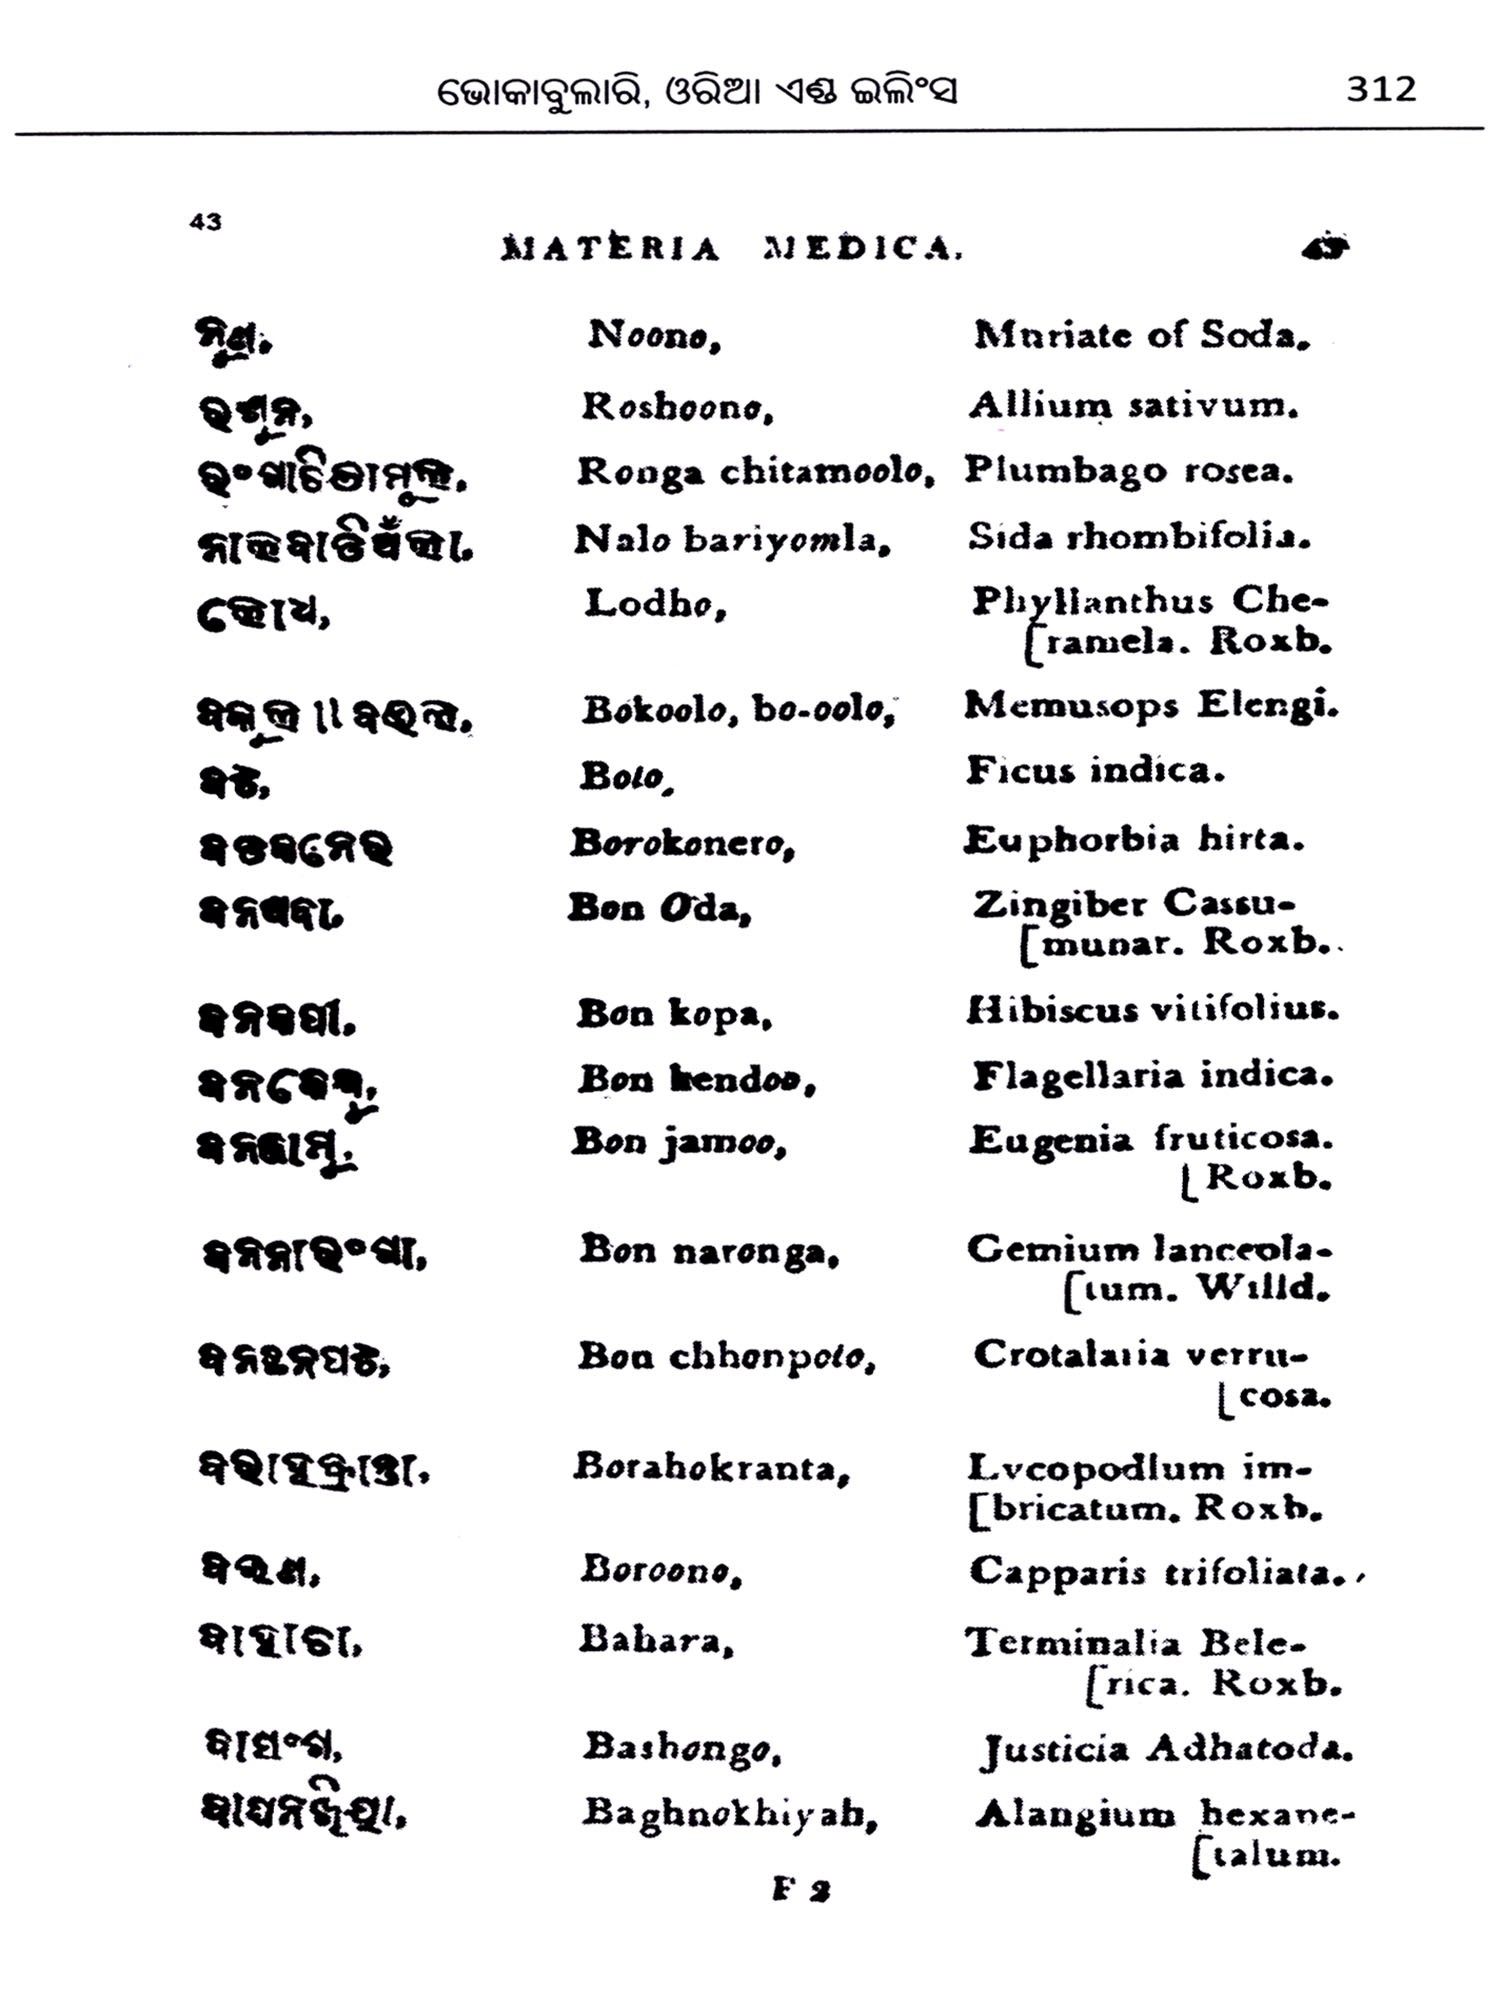 ଭୋକାବୁଲାରି, ଓରିଆ ଏଣ୍ଡ ଇଲିଂସ 312
43
MATERIA MEDICA.
ନୂଣ, Noono, Muriate of Soda.
ରଶୂନ, Roshoono, Allium sativum.
ରଂଗାଚିତାମୂଲ, Ronga chitamoolo, Plumbago rosea.
Nalo bariyomla, Sida rhombifolia.
ଲୋଧ, Lodho, Phyllanthus Che-
[ramela. Roxb.
ବକୂଲ ॥ ବଉଲ, Bokoolo, bo-oolo, Memusops Elengi.
ବଟ, Boto, Ficus indica.
ବଡକନେର Borokonero, Euphorbia hirta.
ବନଅଦା, Bon Oda, Zingiber Cassu-
[munar. Roxb.
ବନକପା, Bon kopa, Hibiscus vitifolius.
ବନକେନ୍ଦୁ, Bon kendoo, Flagellaria indica.
ବନଜାମୂ, Bon jamoo, Eugenia fruticosa.
[Roxb.
ବନନାରଂଗା, Bon naronga, Gemium lanceola-
[tum. Willd.
ବନଛନପଟ, Bon chhonpoto, Crotalaria verru-
[cosa.
ବରାହକ୍ରାନ୍ତା, Borahokranta, Lycopodium im-
[bricatum. Roxb.
ବରୁଣ, Boroono, Capparis trifoliata.
ବାହାଡା, Bahara, Terminalia Bele-
[rica. Roxb.
ବାସଂଗ, Bashongo, Justicia Adhatoda.
ବାଘନଖିୟା, Baghnokhiyah, Alangium hexape-
[talum.
F 2